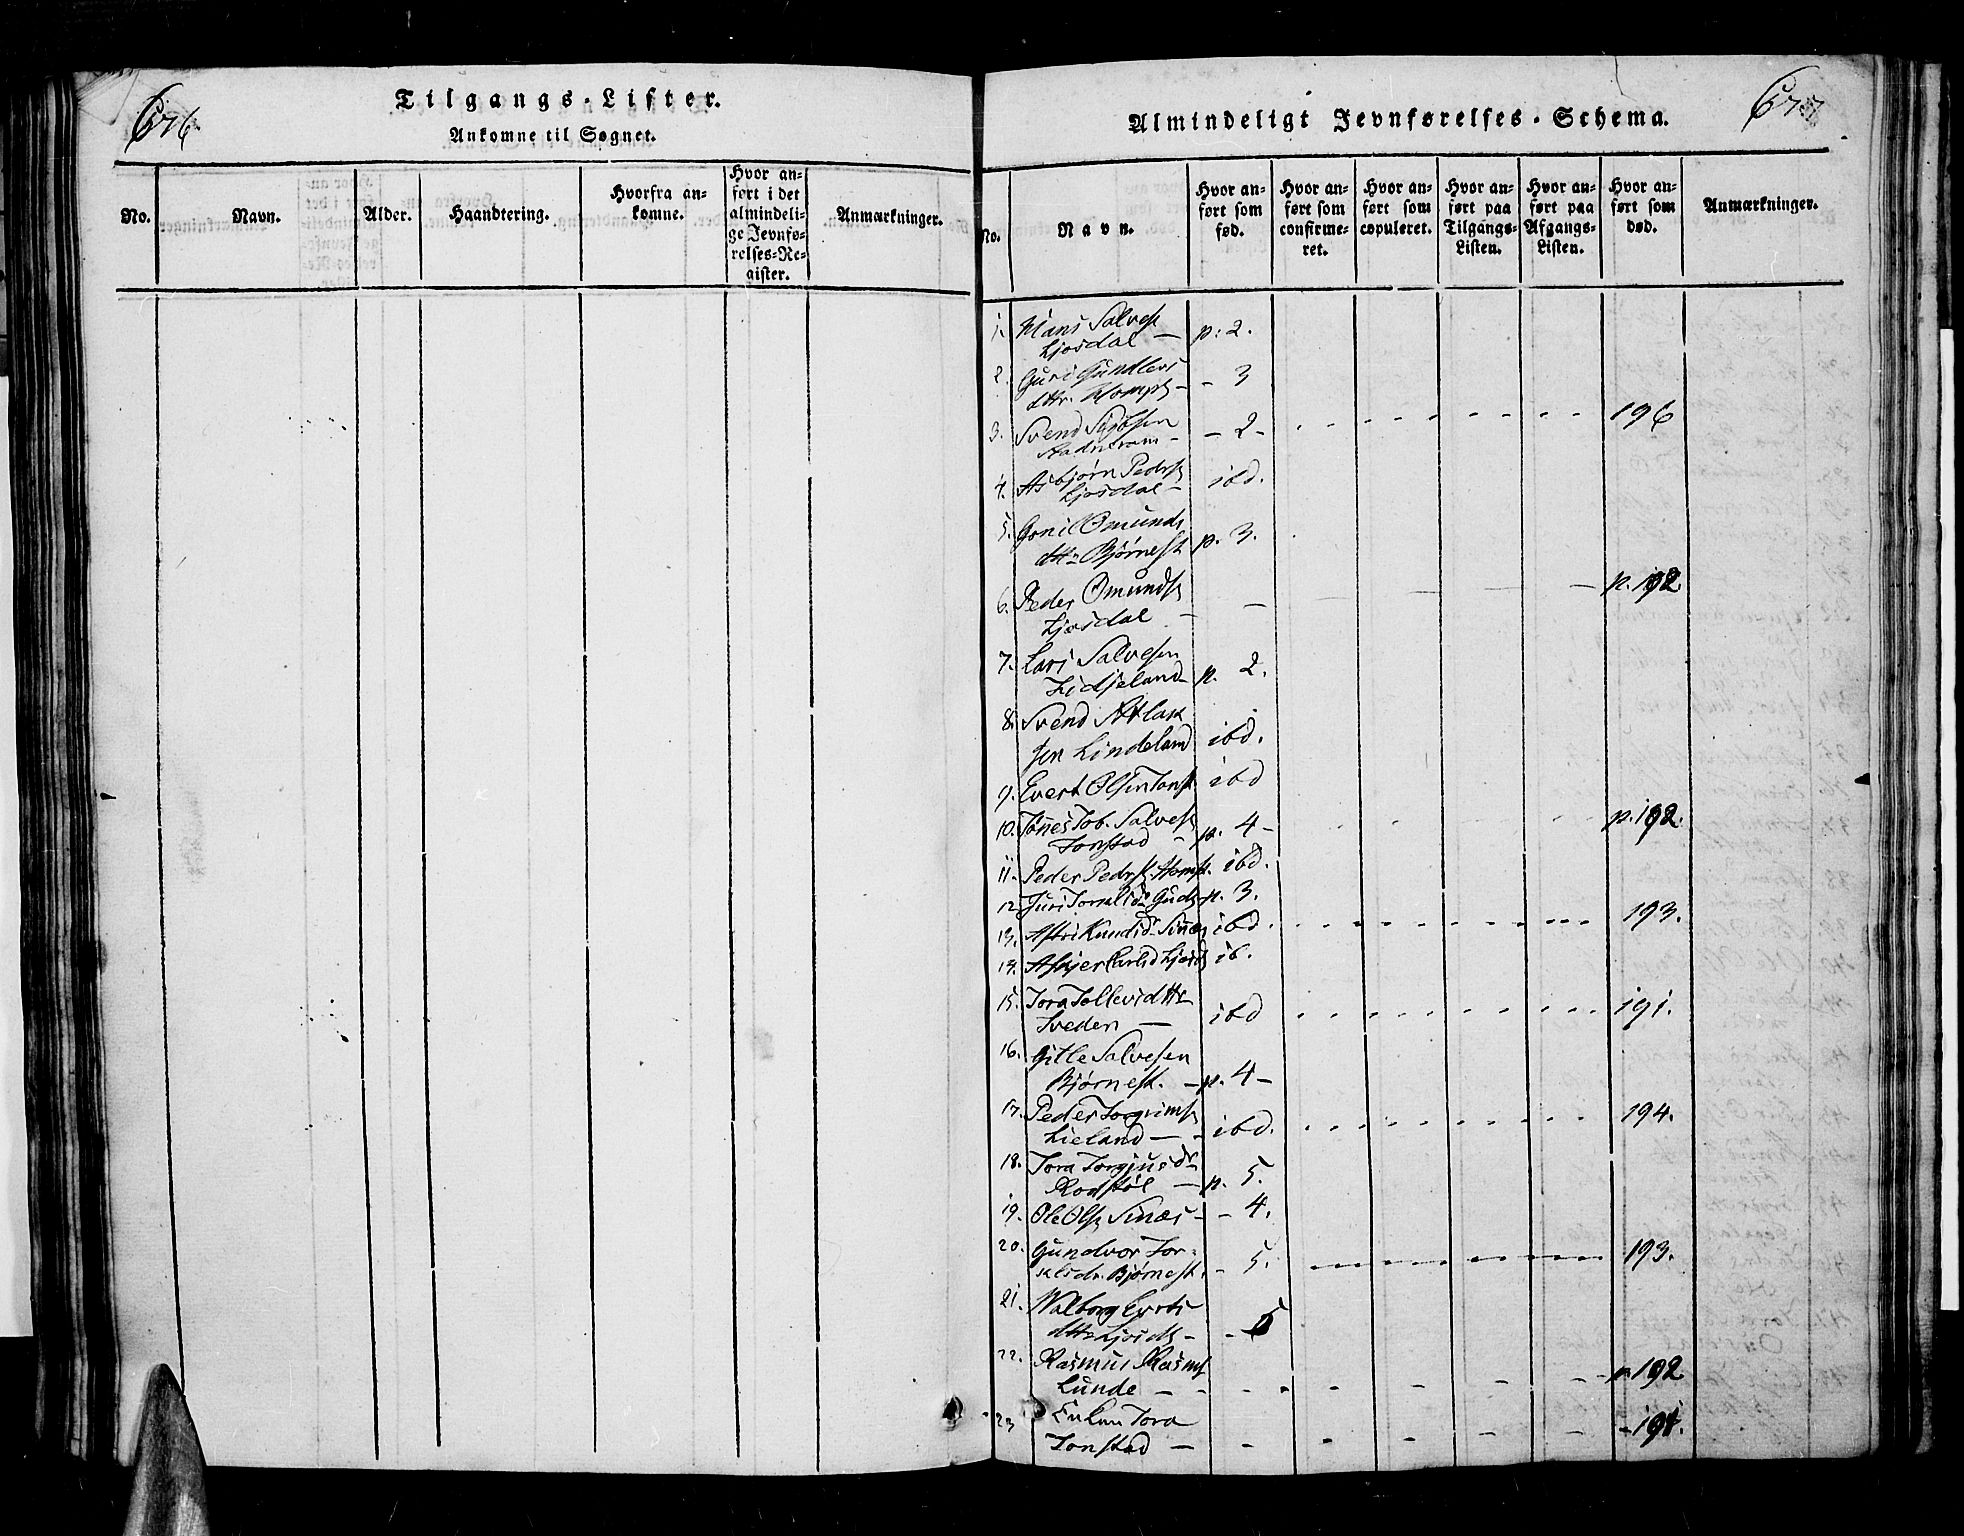 676
Tilgangs-Lister.
Ankomne til Sognet.
No.
Navn.
Alder.
Haandtering.
Hvorfra an-
komne.
Hvor an-
ført i det
almindeli-
ge Jevnfø-
relses-Re-
gister.
Anmærkninger.
677
Almindeligt Jevnførelses-Schema.
No.
Navn.
Hvor an-
ført som
fød.
Hvor an-
ført som
confirme-
ret.
Hvor an-
ført som
copuleret.
Hvor an-
ført paa
Tilgangs-
Listen.
Hvor an-
ført paa
Afgangs-
Listen.
Hvor an-
ført som
død.
Anmærkninger.
1. Hans Salves
Ljosdal — p. 2.
2. Guri Gundlevs
dttr. Homp - - 3
3. Svend - 2 - 196
4. Asbjørn Peders
Ljosdal - ibd.
5. Gonil Omunds
dttr Bjørnest p. 3.
6. Peder Omunds
Ljosdal - — p. 192.
7. Lars Salvesen
Lidjeland p. 2.
8. Svend Atlak
sen Lindeland ibd.
9. Evert Olsen Tonst ibd
10. Tønes Job. Salves
Tonstad - p. 4 - p. 192.
11. Peder Peders. Homp. ibd.
12. Guri p. 3.
13. Astri Knudsd Sinnes ibd. 193.
14. ib.
15. Tora Tollevsdttr
Sveden — ibd 191.
16. Gitle Salvesen
Bjørnest. — p. 4 -
17. Peder Torgrims
Lieland — ibd. 194.
18. Tora Torgjusdr
Rodstøl — p. 5.
19. Ole Ols Sinæs - - 4.
20. Gundvor Tor-
Bjørnest. - 5. 193.
21. Walborg Everts
dttr Ljosds - - 5
22. Rasmus Rasms
Lunde — p. 192
23 Enken Tora
Tonstad — - 191.